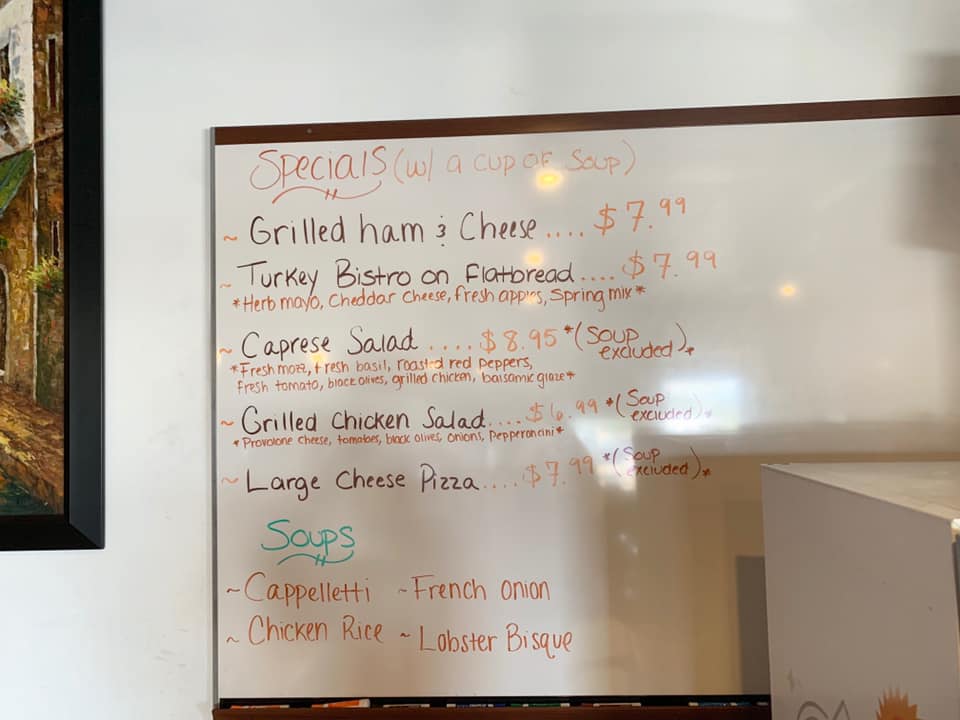 Specials (w/ a cup of soup)
~ Grilled ham & Cheese .... $7.99
~ Turkey Bistro on Flatbread .... $7.99
*Herb mayo, Cheddar Cheese, fresh apples, Spring mix*
~ Caprese Salad .... $8.95 *(Soup excluded)*
*Fresh mozz, fresh basil, roasted red peppers,
fresh tomato, black olives, grilled chicken, balsamic glaze*
~ Grilled Chicken Salad .... $6.99 *(Soup excluded)*
*Provolone cheese, tomatoes, black olives, onions, Pepperoncini*
~ Large Cheese Pizza .... $7.99 *(Soup excluded)*
Soups
~ Cappelletti ~ French Onion
~ Chicken Rice ~ Lobster Bisque